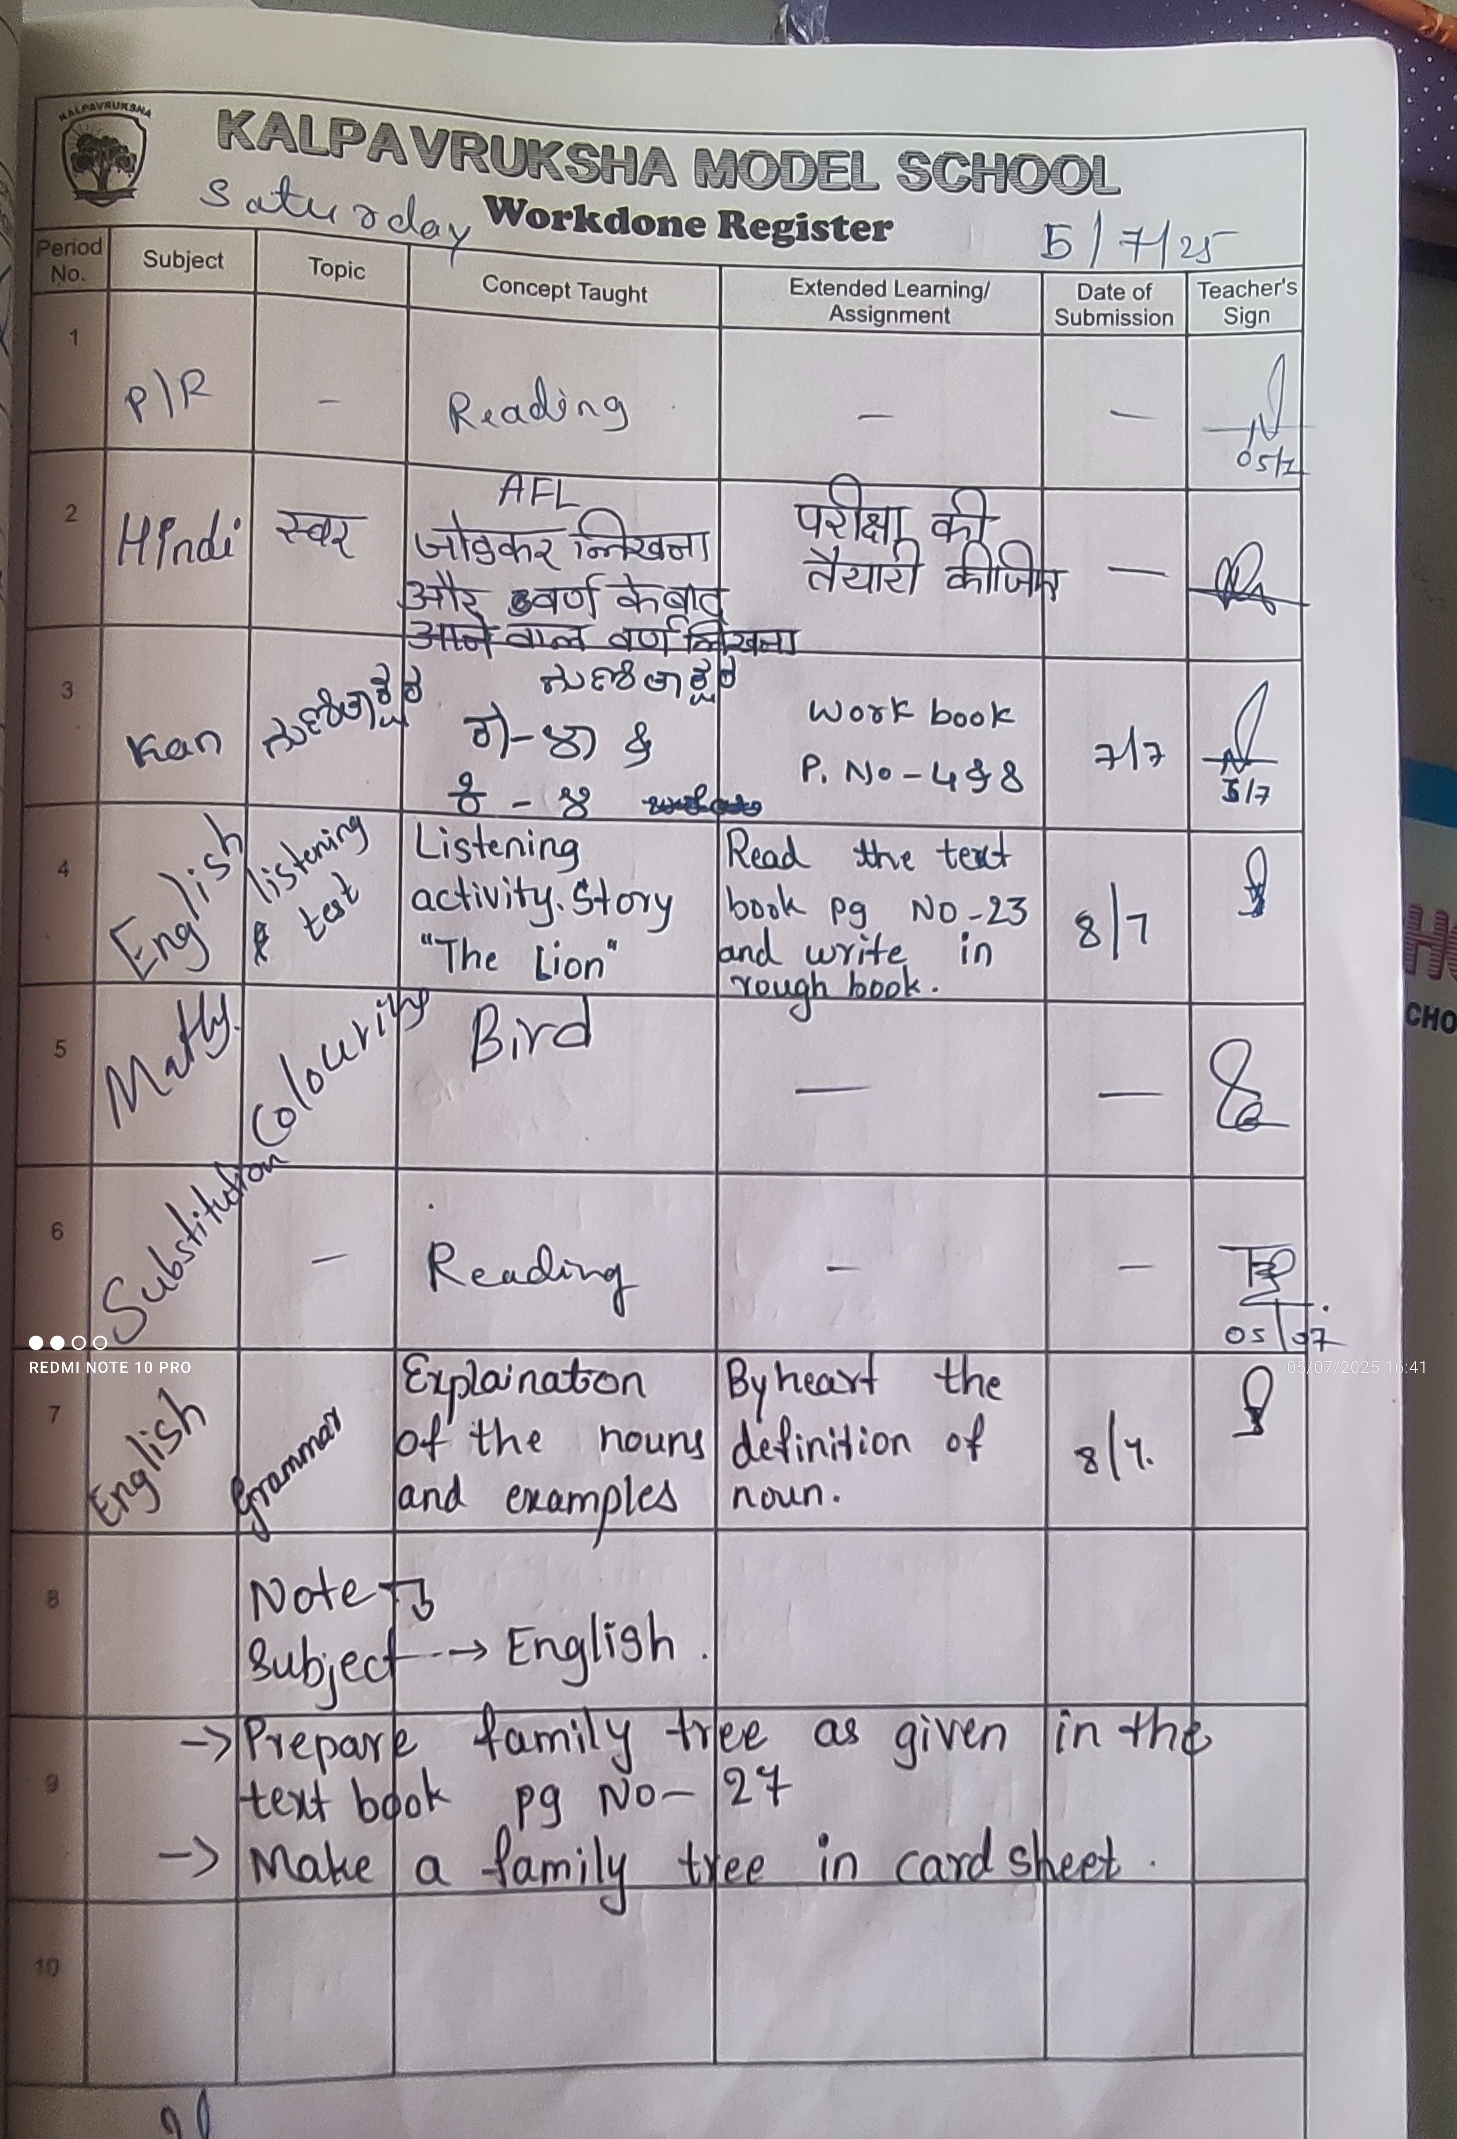 KALPAVRUKSHA
KALPAVRUKSHA MODEL SCHOOL
Saturday
Workdone Register
5/7/25
Period No.
Subject
Topic
Concept Taught
Extended Learning/
Assignment
Date of
Submission
Teacher's
Sign
1
P/R
-
Reading
-
-
05/7
2
Hindi
स्वर
AFL
जोडकर लिखना
और वर्ण के बाद
आने वाल वर्ण लिखना
परीक्षा की
तैयारी कीजिए
-
3
Kan
ಗುಣಿತಾಕ್ಷರ
ಗುಣಿತಾಕ್ಷರ
&
Work book
P. No - 4 & 8
7/7
5/7
4
English
listening
& test
Listening
activity. Story
"The Lion"
Read the text
book pg NO-23
and write in
rough book.
8/7
5
Maths
Colouring
Bird
-
-
6
Substitution
-
Reading
-
-
05/07
7
English
Grammar
Explaination
of the nouns
and examples
Byheart the
definition of
noun.
8/7.
8
Note
Subject → English.
9
→ Prepare family tree as given in the
text book pg No- 27
→ Make a family tree in card sheet.
10
REDMI NOTE 10 PRO
05/07/2025 16:41
CHO